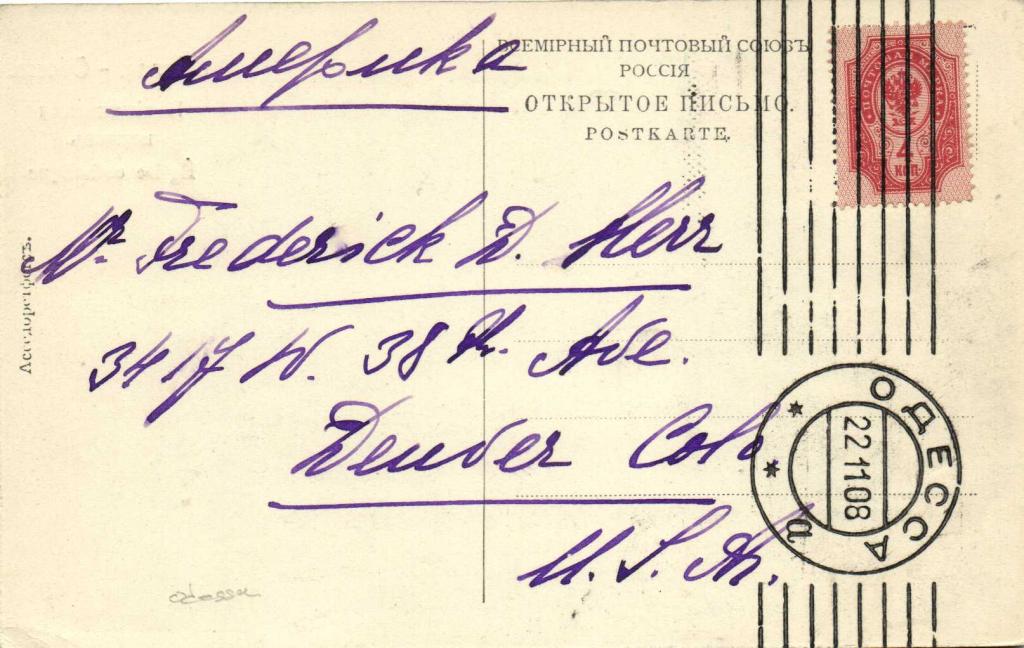 Америка
ВСЕМІРНЫЙ ПОЧТОВЫЙ СОЮЗЪ
РОССІЯ
ОТКРЫТОЕ ПИСЬМО.
POSTKARTE.
ПОЧТОВАЯ МАРКА
4
КОП
Mr Frederick D. Herr
3417 W. 38th. Ave.
Denver Colo
U. S. A.
ОДЕССА
22 11 08
Odessa